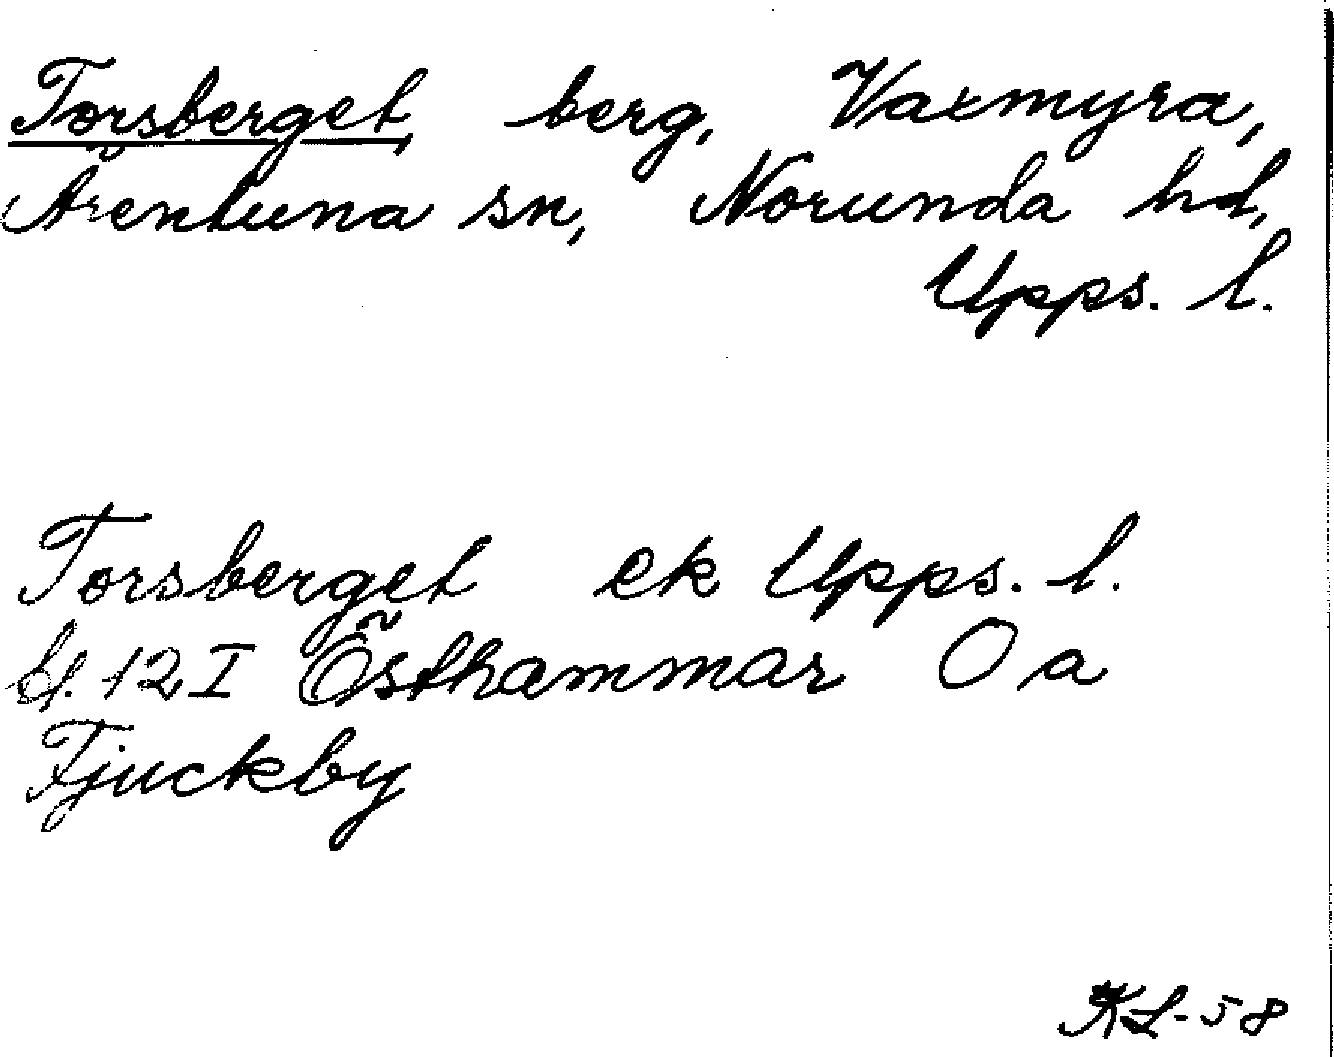 Torsberget, berg, Vaxmyra,
Ärentuna sn, Norunda hd,
Upps. l.
Torsberget ek Upps. l.
bl. 12 I Östhammar O a
Fjuckby
KL-58